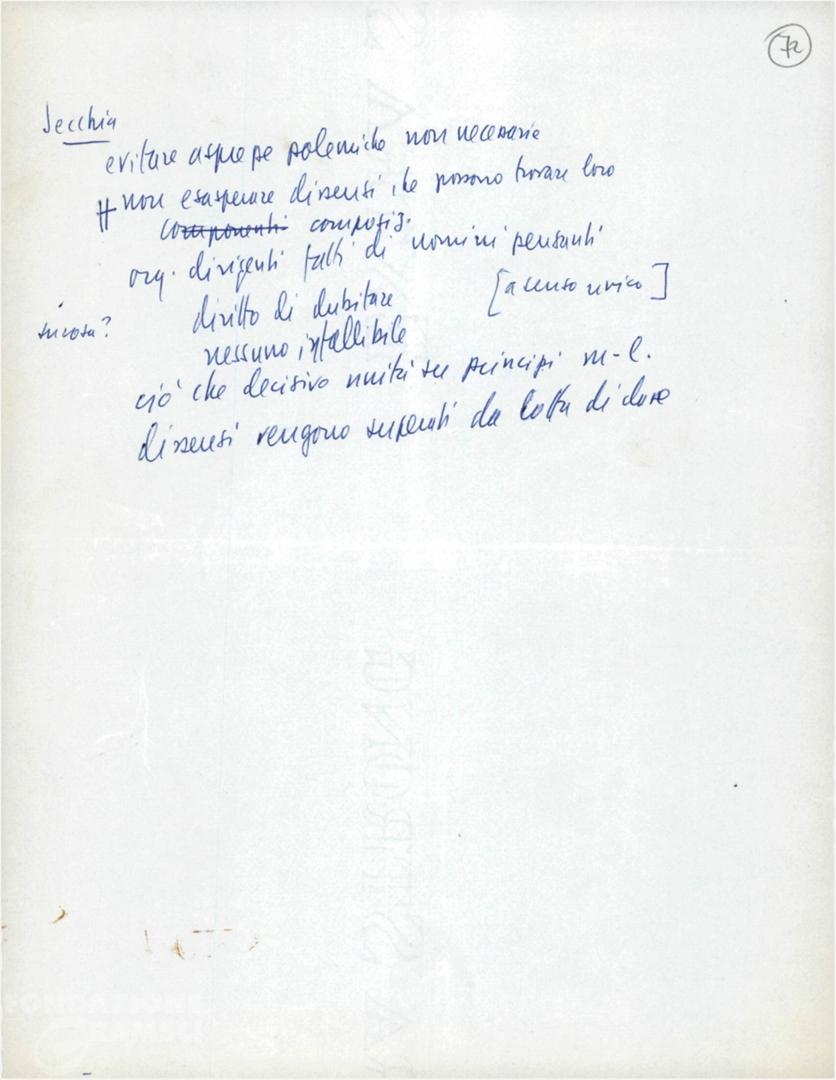 72
Secchia
evitare asprezze polemiche non necessarie
# non esasperare dissensi che possono trovare loro
componenti composiz.
org. dirigenti fatti di uomini pensanti
diritto di dubitare [a senso unico]
su cosa?
nessuno infallibile
ciò che decisivo unità su principi m-l.
dissensi vengono superati da lotta di classe
FONDAZIONE
GRAMSCI